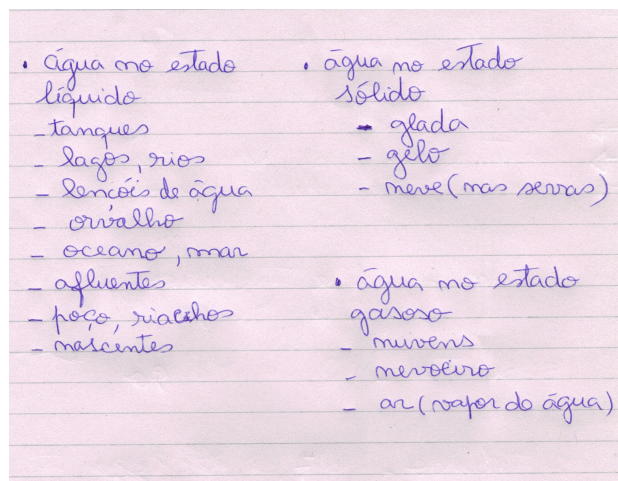 • água no estado
líquido
- tanques
- lagos, rios
- lencóis de água
- orvalho
- oceano, mar
- afluentes
- poço, riachos
- nascentes
• água no estado
sólido
- glada
- gelo
- neve (nas serras)
• água no estado
gasoso
- nuvens
- nevoeiro
- ar (vapor do água)